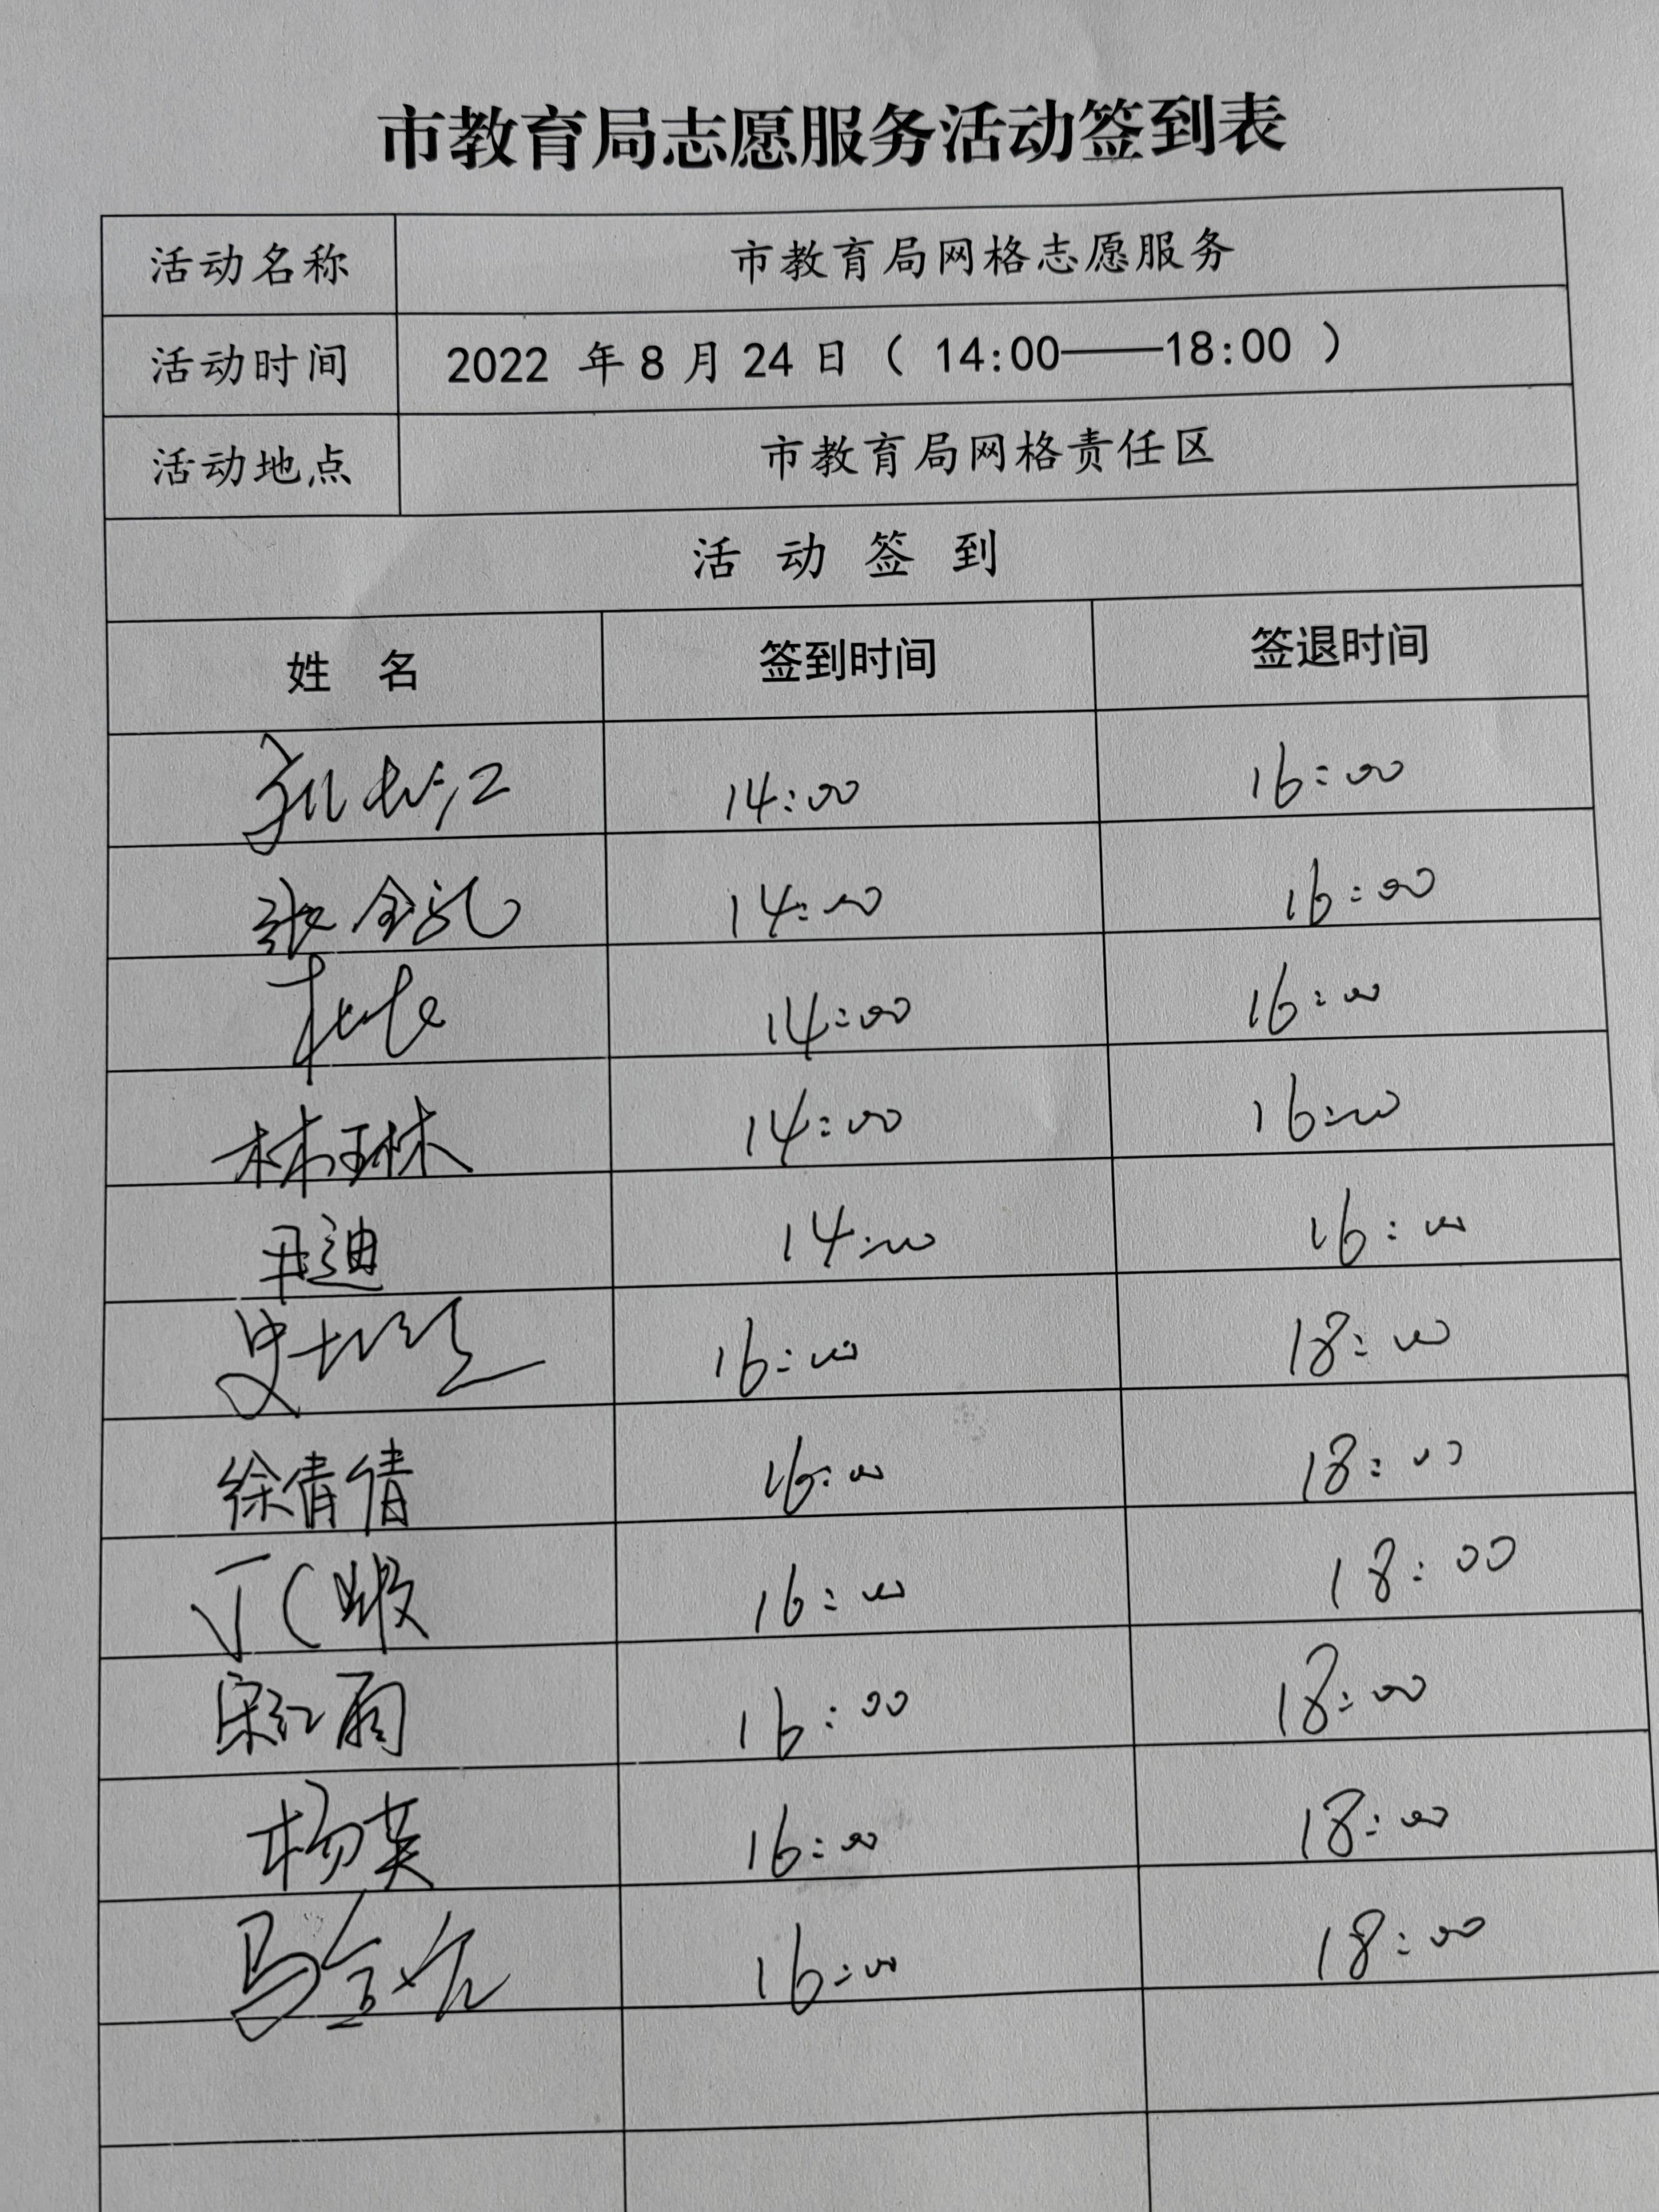 市教育局志愿服务活动签到表
活动名称 市教育局网格志愿服务
活动时间 2022 年 8 月 24 日（ 14:00——18:00 ）
活动地点 市教育局网格责任区
活 动 签 到
姓 名 签到时间 签退时间
14:00 16:00
14:00 16:00
14:00 16:00
林琳 14:00 16:00
尹迪 14:00 16:00
史 16:00 18:00
徐倩倩 16:00 18:00
16:00 18:00
宋红雨 16:00 18:00
杨英 16:00 18:00
马 16:00 18:00